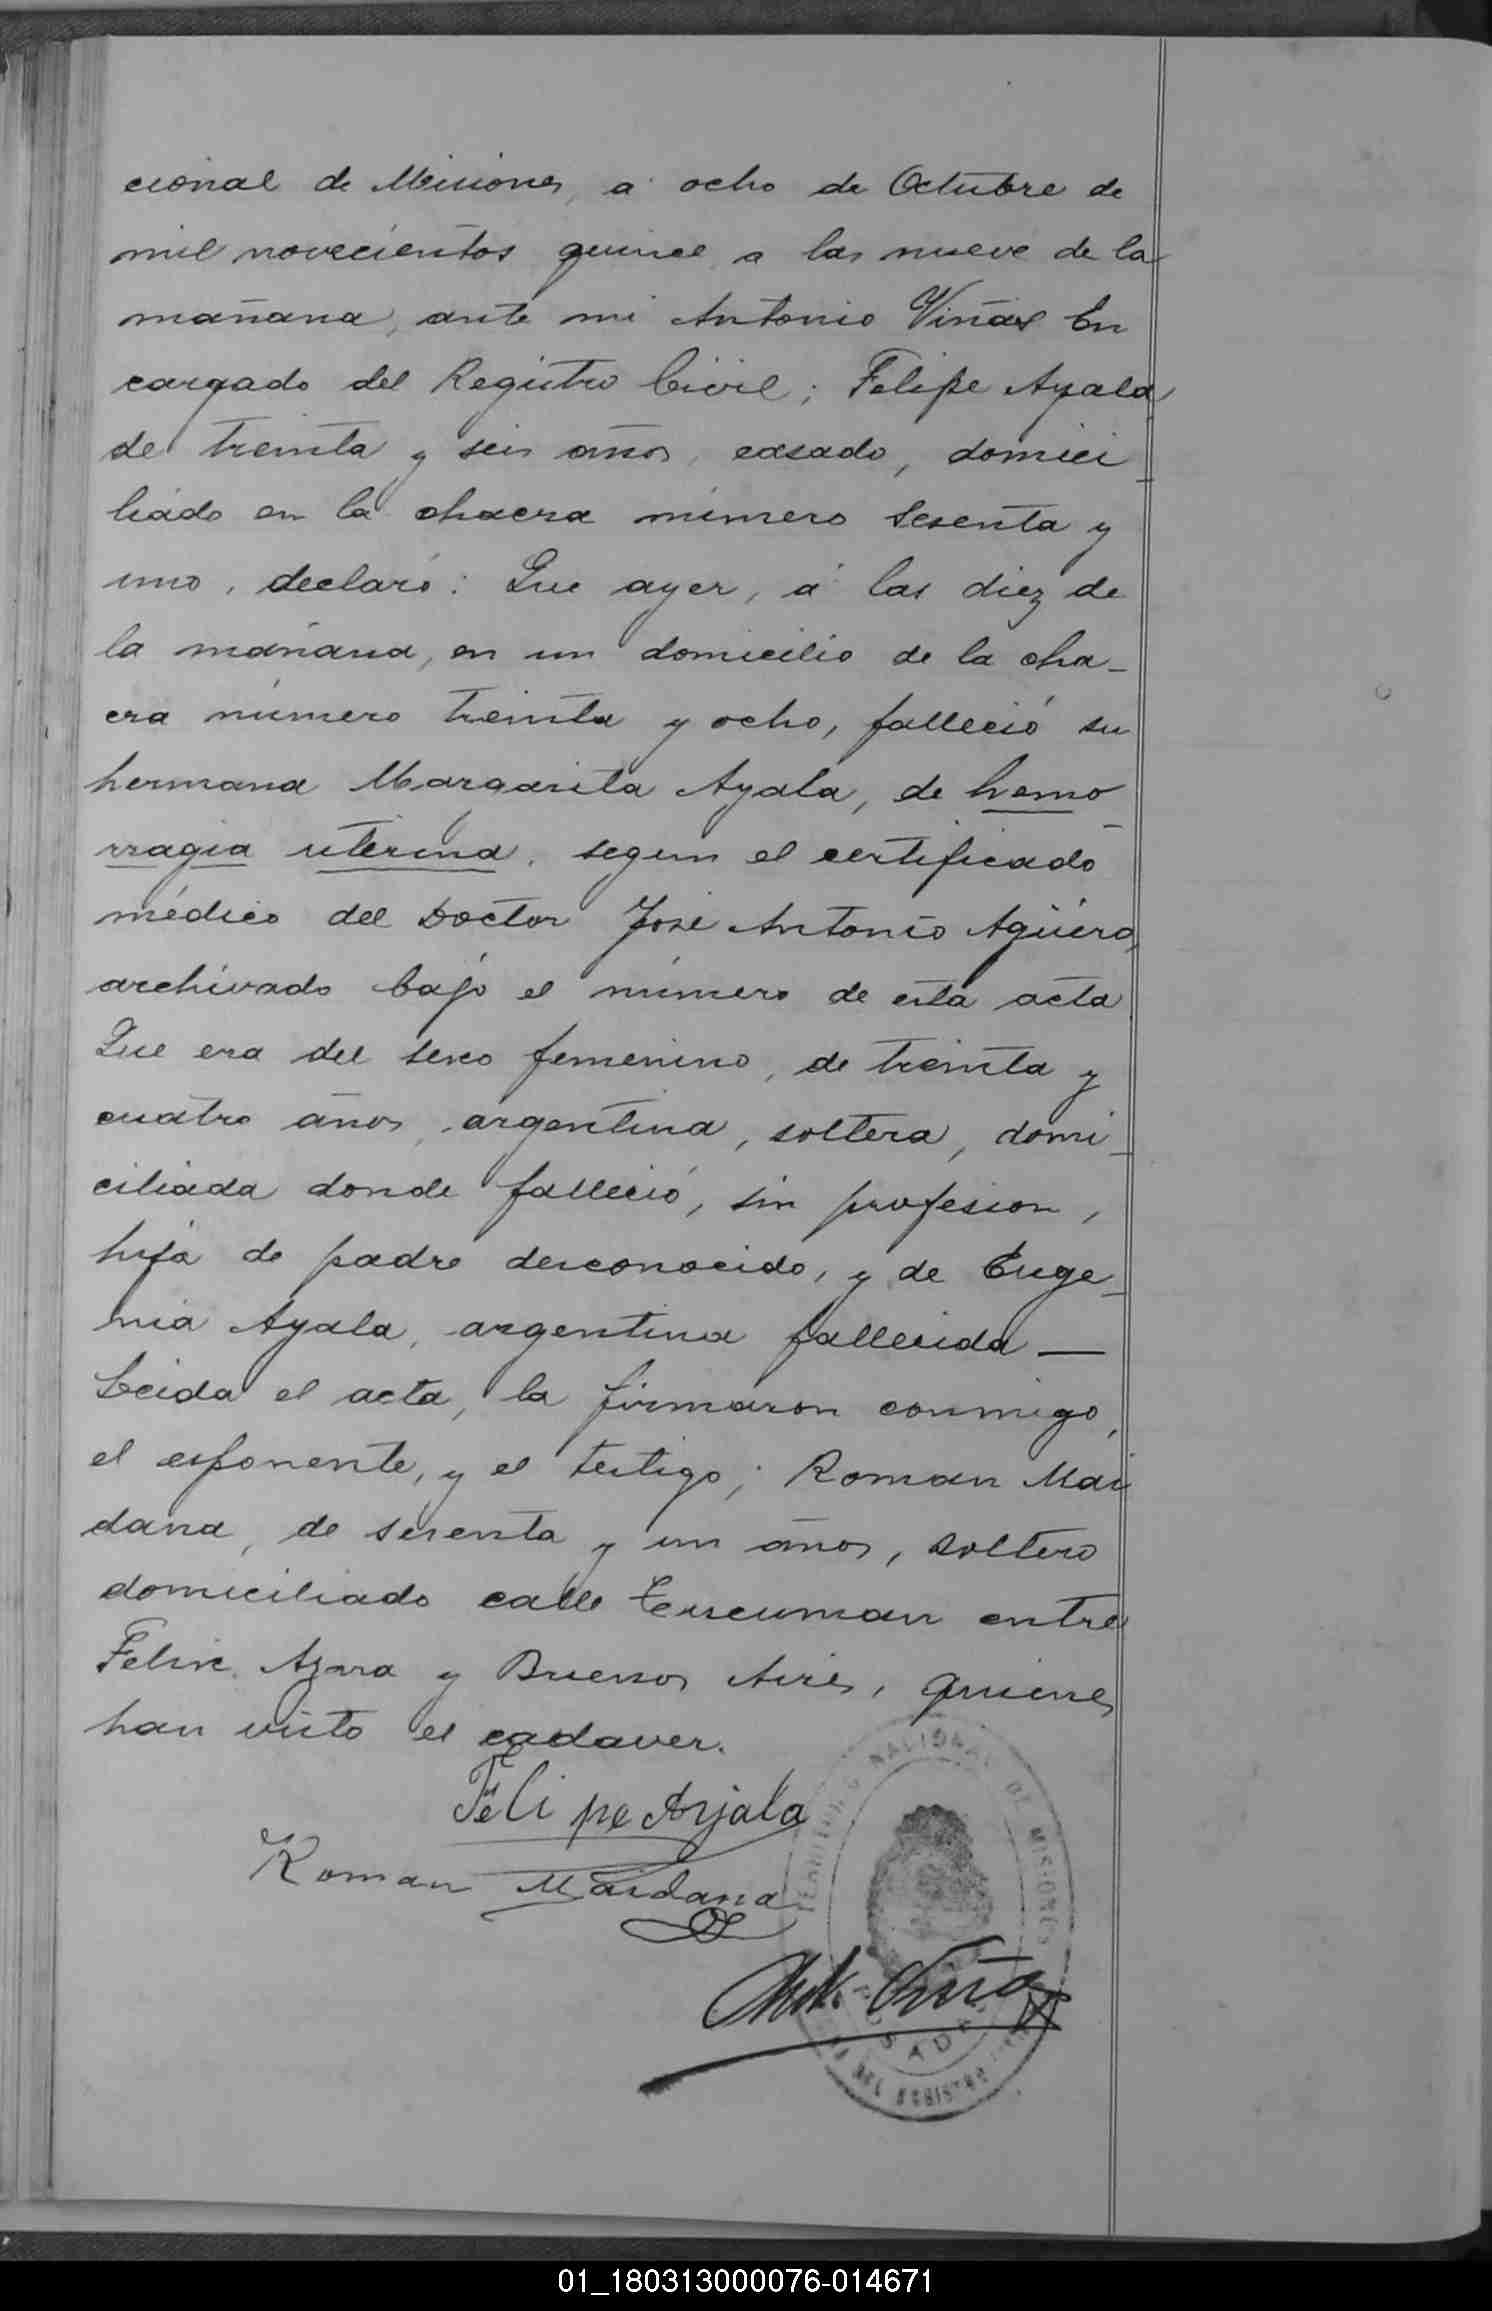 cional de Misiones, a ocho de Octubre de
mil novecientos quince a las nueve de la
mañana, ante mi Antonio Viñas En
cargado del Registro Civil; Felipe Ayala
de treinta y seis años, casado, domici
liado en la chacra número sesenta y
uno, declaró: Que ayer, á las diez de
la mañana, en un domicilio de la cha-
cra número treinta y ocho, falleció su
hermana Margarita Ayala, de hemo
rragia uterina, segun el certificado
médico del Doctor José Antonio Agüero,
archivado bajo el número de esta acta
Que era del sexo femenino, de treinta y
cuatro años, argentina, soltera, domi-
ciliada donde falleció, sin profesion,
hija de padre desconocido, y de Euge-
nia Ayala, argentina fallecida —
Leida el acta, la firmaron conmigo,
el esponente, y el testigo; Roman Mai
dana, de sesenta y un años, soltero
domiciliado calle Tucuman entre
Felix Azara y Buenos Aires, quienes
han visto el cadaver.
Felipe Ayala
Roman Maidana
TERRITORIO NACIONAL DE MISIONES
POSADAS
01_180313000076-014671